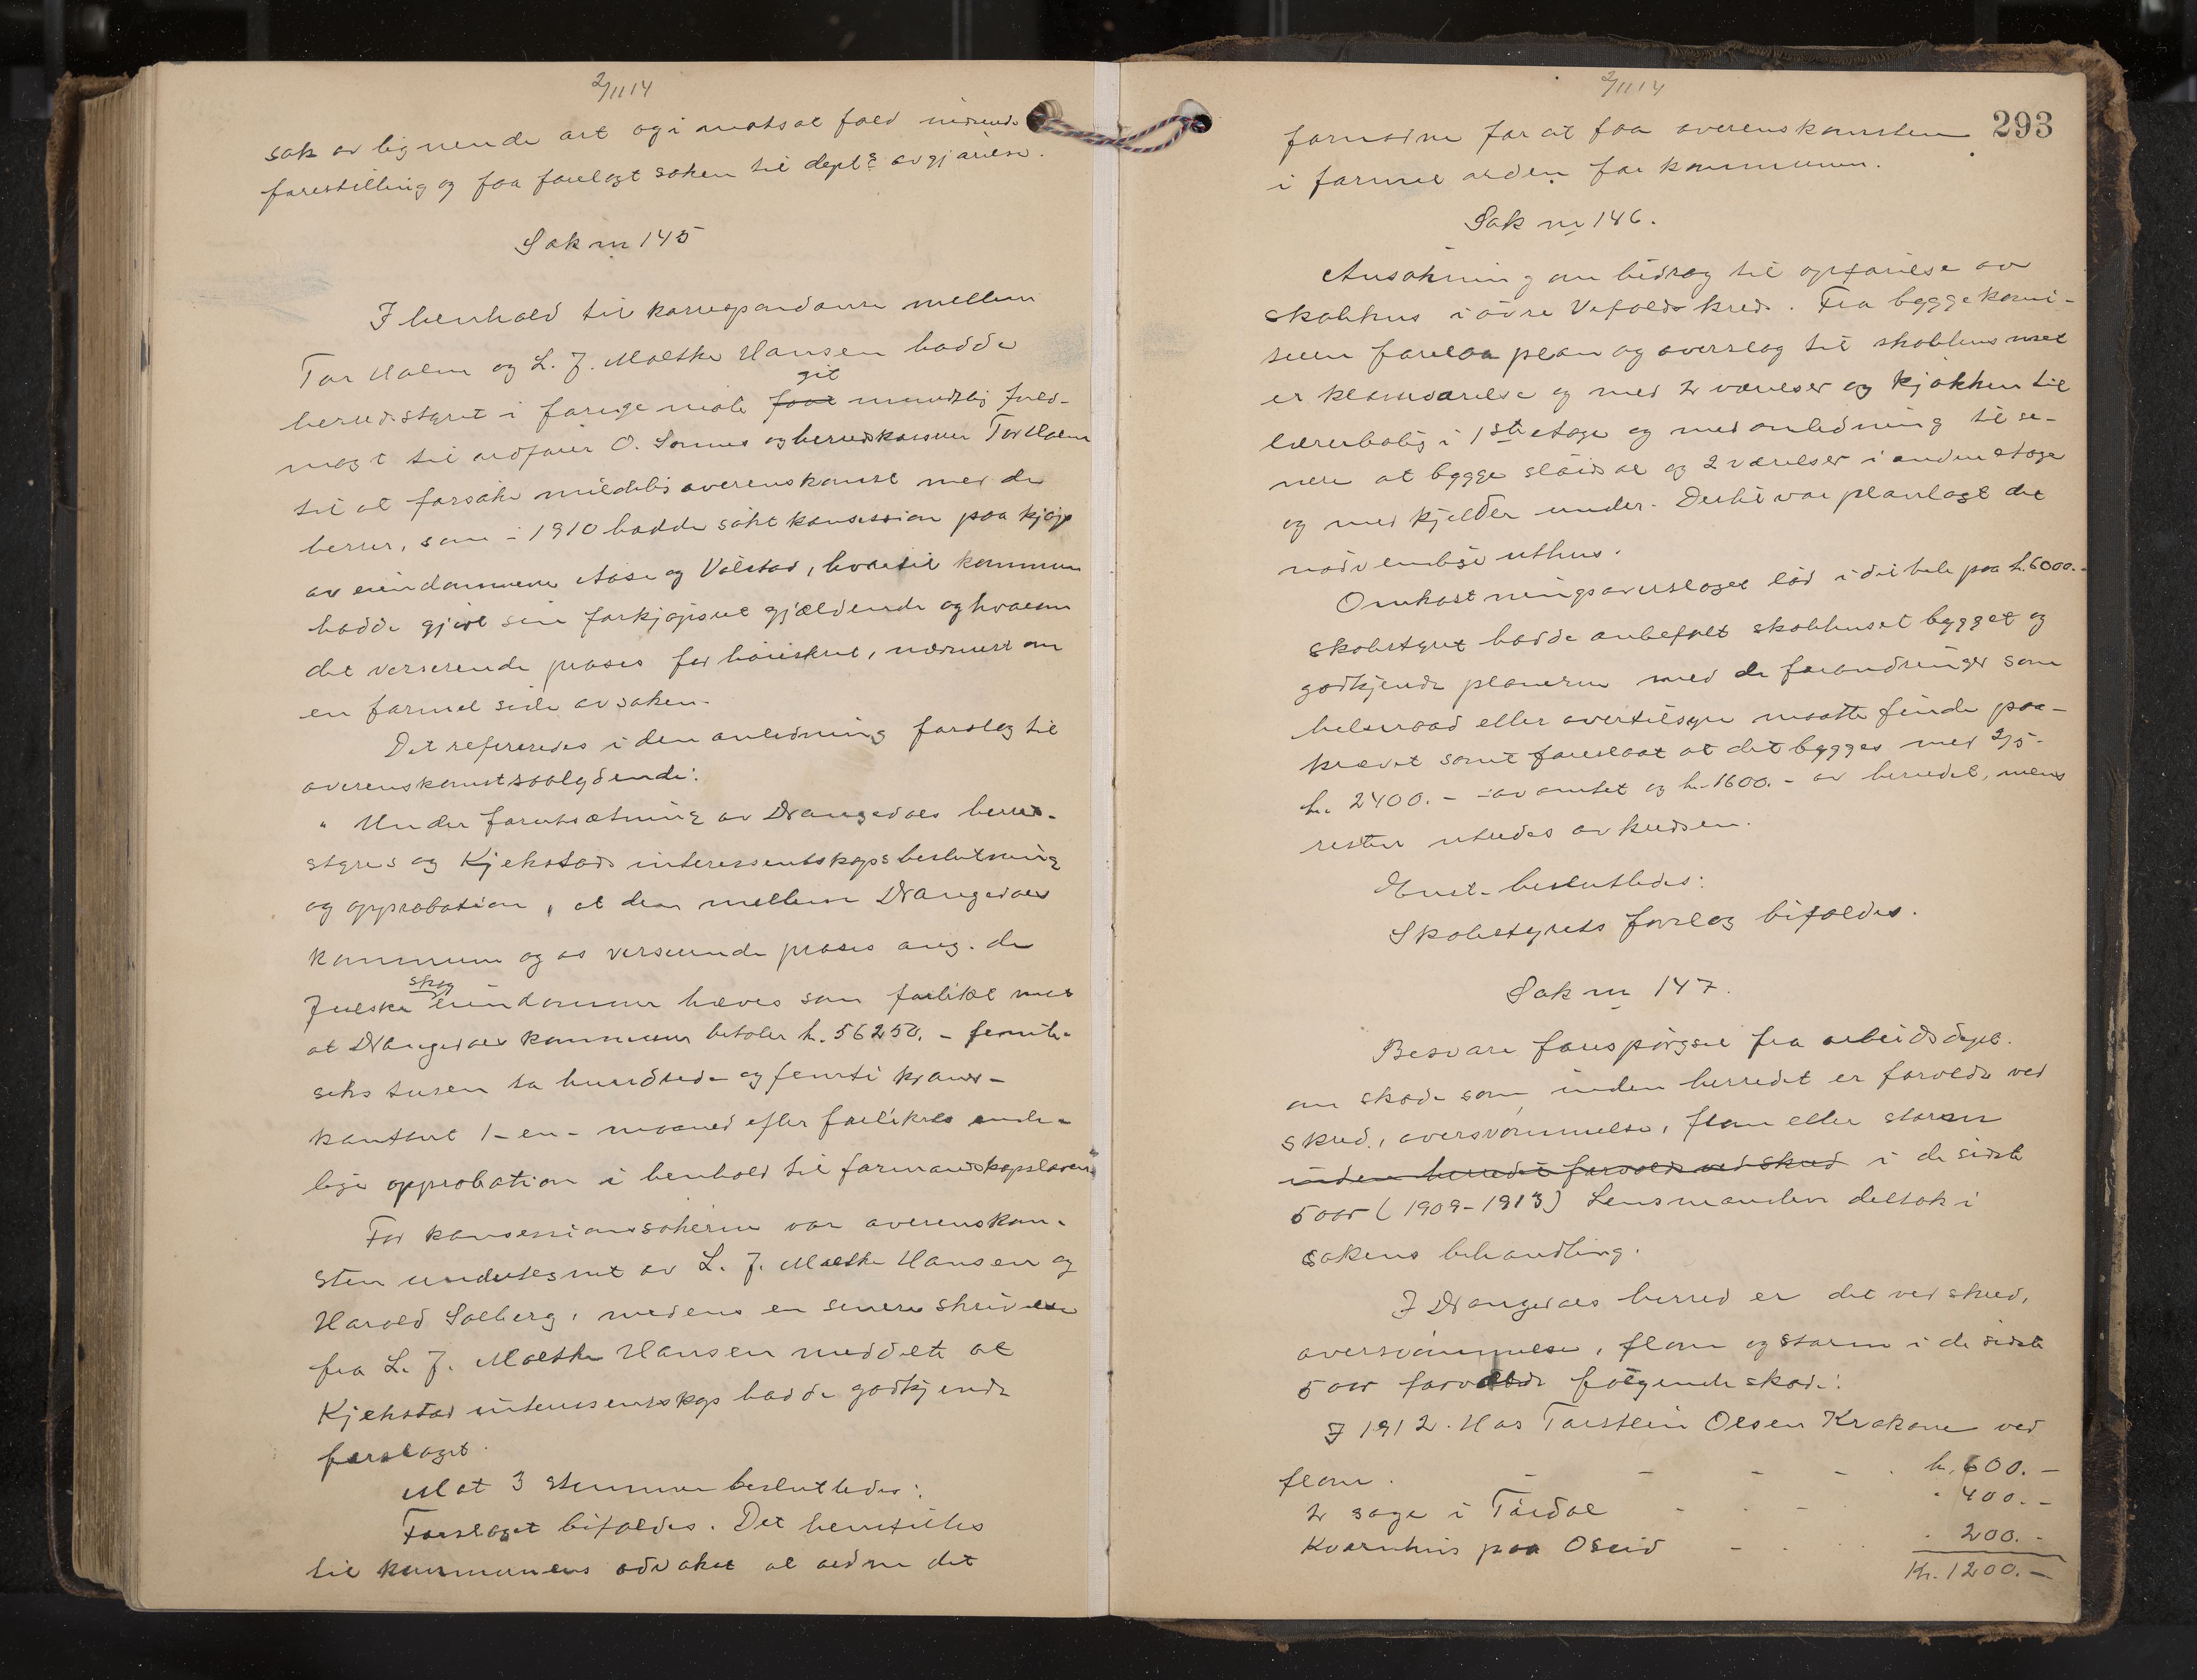 2/11 14
sak av lignende art og i motsat fald indsende
forestilling og faa forelagt saken til depts avgjørelse.
Sak nr 145
I henhold til korrespondanse mellem
Tor Holm og L. J. Moltke Hansen hadde
herredsstyret i forrige møte faat git mundtlig fuld-
magt til ordfører O. Sannes og herredskasserer Tor Holm
til at forsøke mindelig overenskomst med de
herrer, som i 1910 hadde søkt konsession paa kjøp
av eiendommene Aase og Vølstad, hvortil kommunen
hadde gjort sin forkjøpsret gjældende og hvorom
det verserende proses for høiesteret, nærmest om
en formel side av saken.
Det refereredes i den anledning forslag til
overenskomst saalydende:
" Under forutsætning av Drangedals herred-
styres og Kjekstad interessentskaps beslutning
og approbation, at den mellem Drangedals
kommune og os verserende proses ang. de
Juelske skogeiendomme hæves som forlikt mot
at Drangedals kommune betaler kr. 56250.- femti-
seks tusen to hundrede og femti kroner-
kontant 1-en- maaned efter forlikets ende-
lige approbation i henhold til formandskapsloven"
For konsessionssøkerne var overenskom-
sten undertegnet av L. J. Moltke Hansen og
Harald Solberg, medens en senere skrivelse
fra L. J. Moltke Hansen meddelte at
Kjekstad interessentskap hadde godkjendt
forslaget.
Mot 3 stemmer besluttedes:
Forslaget bifaldes. Det henstilles
til kommunens advokat at ordne det
2/11 14
293
fornødne for at faa overenskomsten
i formel orden for kommunen.
Sak nr 146.
Ansøkning om bidrag til opførelse av
skolehus i øvre Vefalds kreds. Fra byggekomi-
teen forelaa plan og overslag til skolehus med
et klasseværelse og med 2 værelser og kjøkken til
lærerbolig i 1ste etage og med anledning til se-
nere at bygge sløidsal og 2 værelser i anden etage
og med kjelder under. Dertil var planlagt det
nødvendige uthus.
Omkostningsoverslaget lød i det hele paa kr. 6000.-
Skolestyret hadde anbefalt skolehuset bygget og
godkjendt planerne med de forandringer som
helseraad eller overtilsyn maatte finde paa-
krævet samt foreslaat at det bygges med 2/5-
kr. 2400.- av amtet og kr. 1600.- av herredet, mens
resten utredes av kredsen.
Enst. besluttedes:
Skolestyrets forslag bifaldes.
Sak nr 147.
Besvare forespørgsel fra arbeidsdept.
om skade som inden herredet er forvoldt ved
skred, oversvømmelse, flom eller storm
inden herredet forvoldt ved skred i de sidste
5 aar (1909-1913) Lensmanden deltok i
sakens behandling.
I Drangedals herred er det ved skred,
oversvømmelse, flom og storm i de sidste
5 aar forvoldt følgende skade:
I 1912. Hos Torstein Olsen Krokane ved
flom. - - - - kr. 600.-
2 sage i Tørdal - - - " 400.-
Kvernhus paa Oseid - - " 200.-
Kr. 1200.-